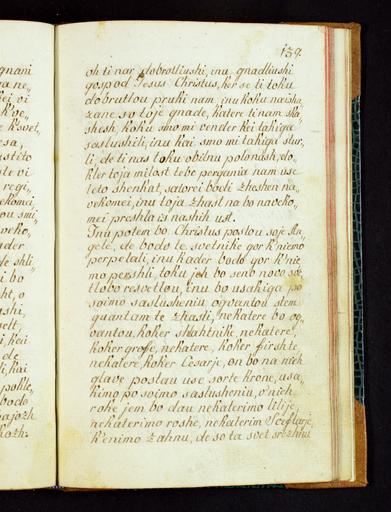 gnani
ga ne„
kei vi
k've„
e k'svet,
esa,
istito
ste vi
regi„
vekomei,
ou smi„
veko„
ader
de shli„
i bo
ht, o
ashi,
sett,
i, kei
de
li, kai
pohle„
bodo
ajozh
kozh.
159.
oh ti nar dobrotliushi, inu gnadliushi
gospod Jesus Christus, ker se ti toku
dobrutlou pruki nam, inu koku naisha„
zane so toje gnade, katere ti nam ska„
shesh, koku smo mi vender kei takiga
saslushili, inu kai smo mi takiga stur„
li, de ti nas toku obilnu polonash, do„
kler toja milost tebe pergania nam use
leto shenkat, satorei bodi zheshen na„
vekomei, inu toja zhast na bo naveko„
mei preshla is nashih ust.
Inu potem bo Christus poslou soje An„
gele, de bodo te svetnike gor k'niemo
perpelali, inu kader bodo gor k'nie„
mo pershli toku jeh bo seno novo sve„
tlobo resvetlou, inu bo usakiga po
sojmo saslusheniu ogvantou stem
guantam te zhasti, nekatere bo og„
vantou, koker shlahtnike, nekatere
koker grofe, nekatere, koker firshte,
nekatere, koker Cesarje, on bo na nieh
glave postau use sorte krone, usa„
kimo po sojmo saslusheniu, v'nieh
roke jem bo dau nekaterimo lilije,
nekaterimo roshe, nekaterim Sceptarje,
k'enimo zahnu, de so ta svet srezhnu